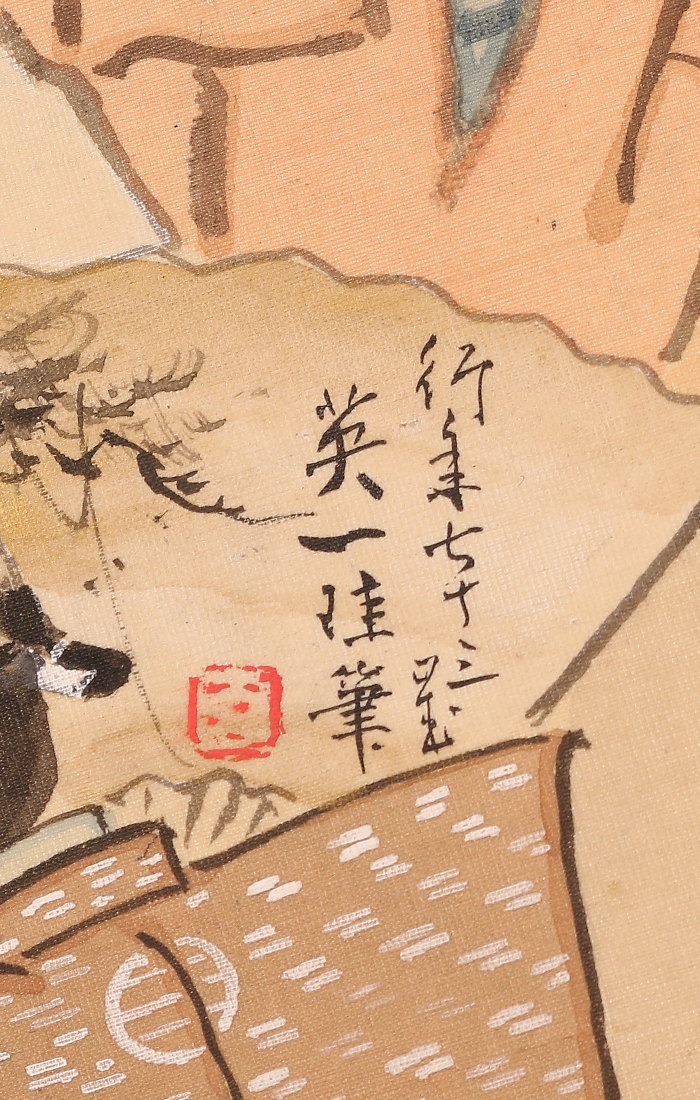 行年七十三歳
英一珪筆